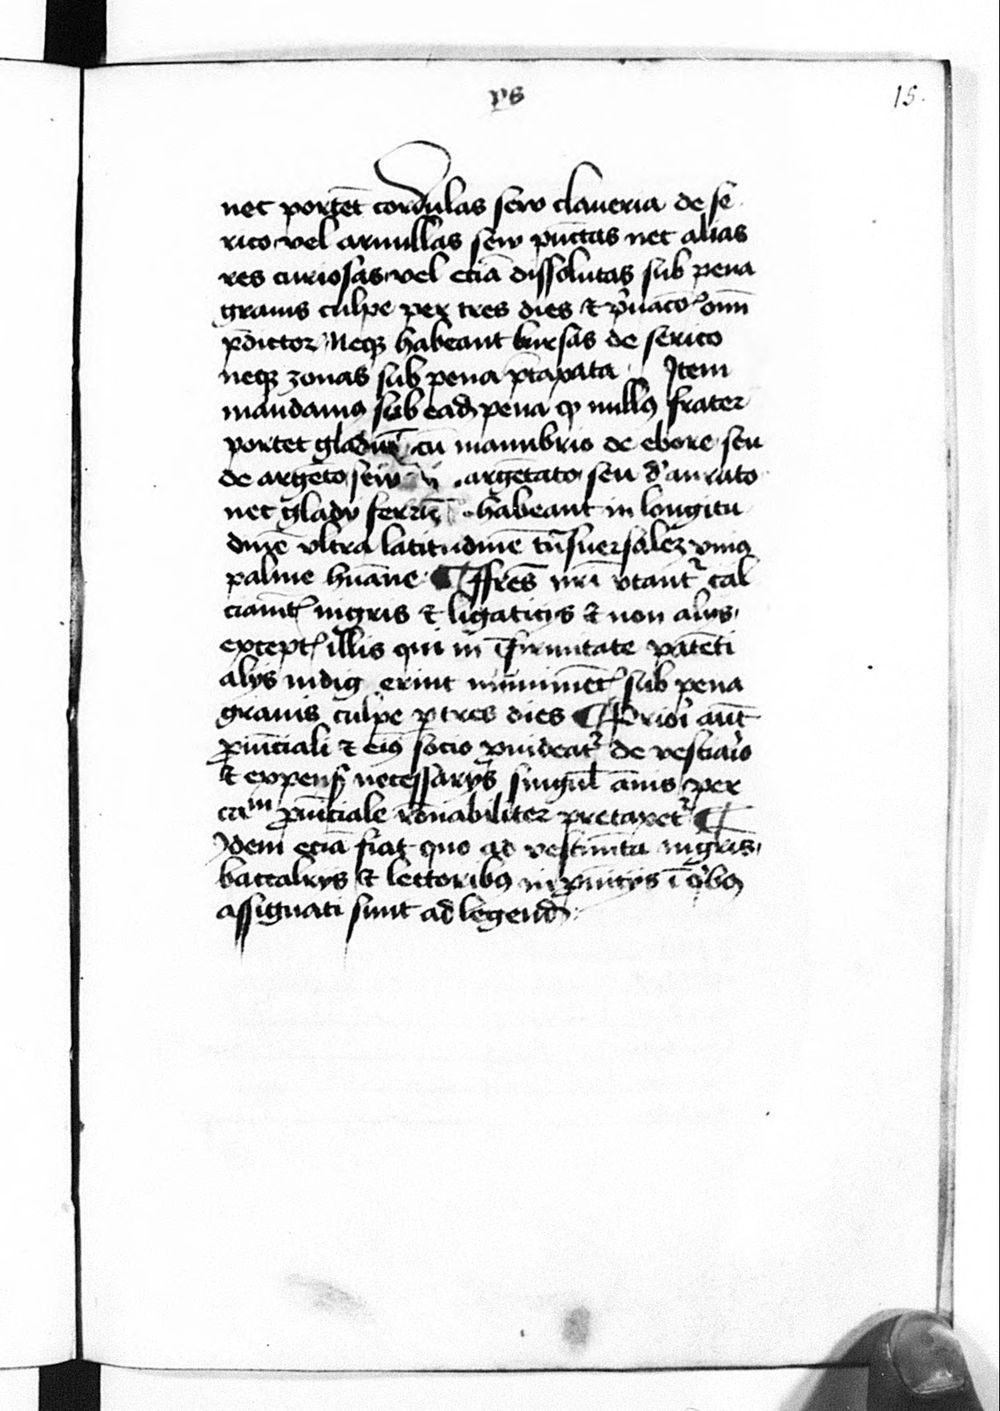 ps
15.
nec portēt cordulas sew claueria de se
rico vel armillas sew pūctas nec alias
res curiosas vel eciā dissolutas sub pena
grauis culpe per tres dies et p̄uacōe om̄i
pdictor Neqꝫ habeant bursas de serico
neqꝫ zonas sub pena p̄taxata Item
mandamꝰ sub eadꝫ pena ꝙ nullꝰ frater
portet gladiū cū manubrio de ebore seu
de argēto sew argētato seu d'aurato
nec gladij ferrū habeant in longitu
dīnē vltra latitudinē trāsuersalez vniꝰ
palme hūane ¶ ffrēs nrī vtantᷣ cal
ciamētꝭ nigris et ligaticijs et non alijs
exceptꝭ illis qui in īfirmitate patēti
alijs indig erint mīnimētꝭ sub pena
grauis culpe ꝑ tres dies ¶ Priori aūt
ꝓuīciali et eiꝰ socio ꝓuideatᷣ de vestiario
et expensꝭ necessarijs singul' ānis per
caᵐ ꝓuīciale rōnabiliter pretaxetᷣ ¶
Idem eciā fiat quo ad vestimēta nigris
baccalrijs et lectoribꝰ in ꝓuīcijs ī qⁱbꝰ
assignati sunt ad legendꝭ